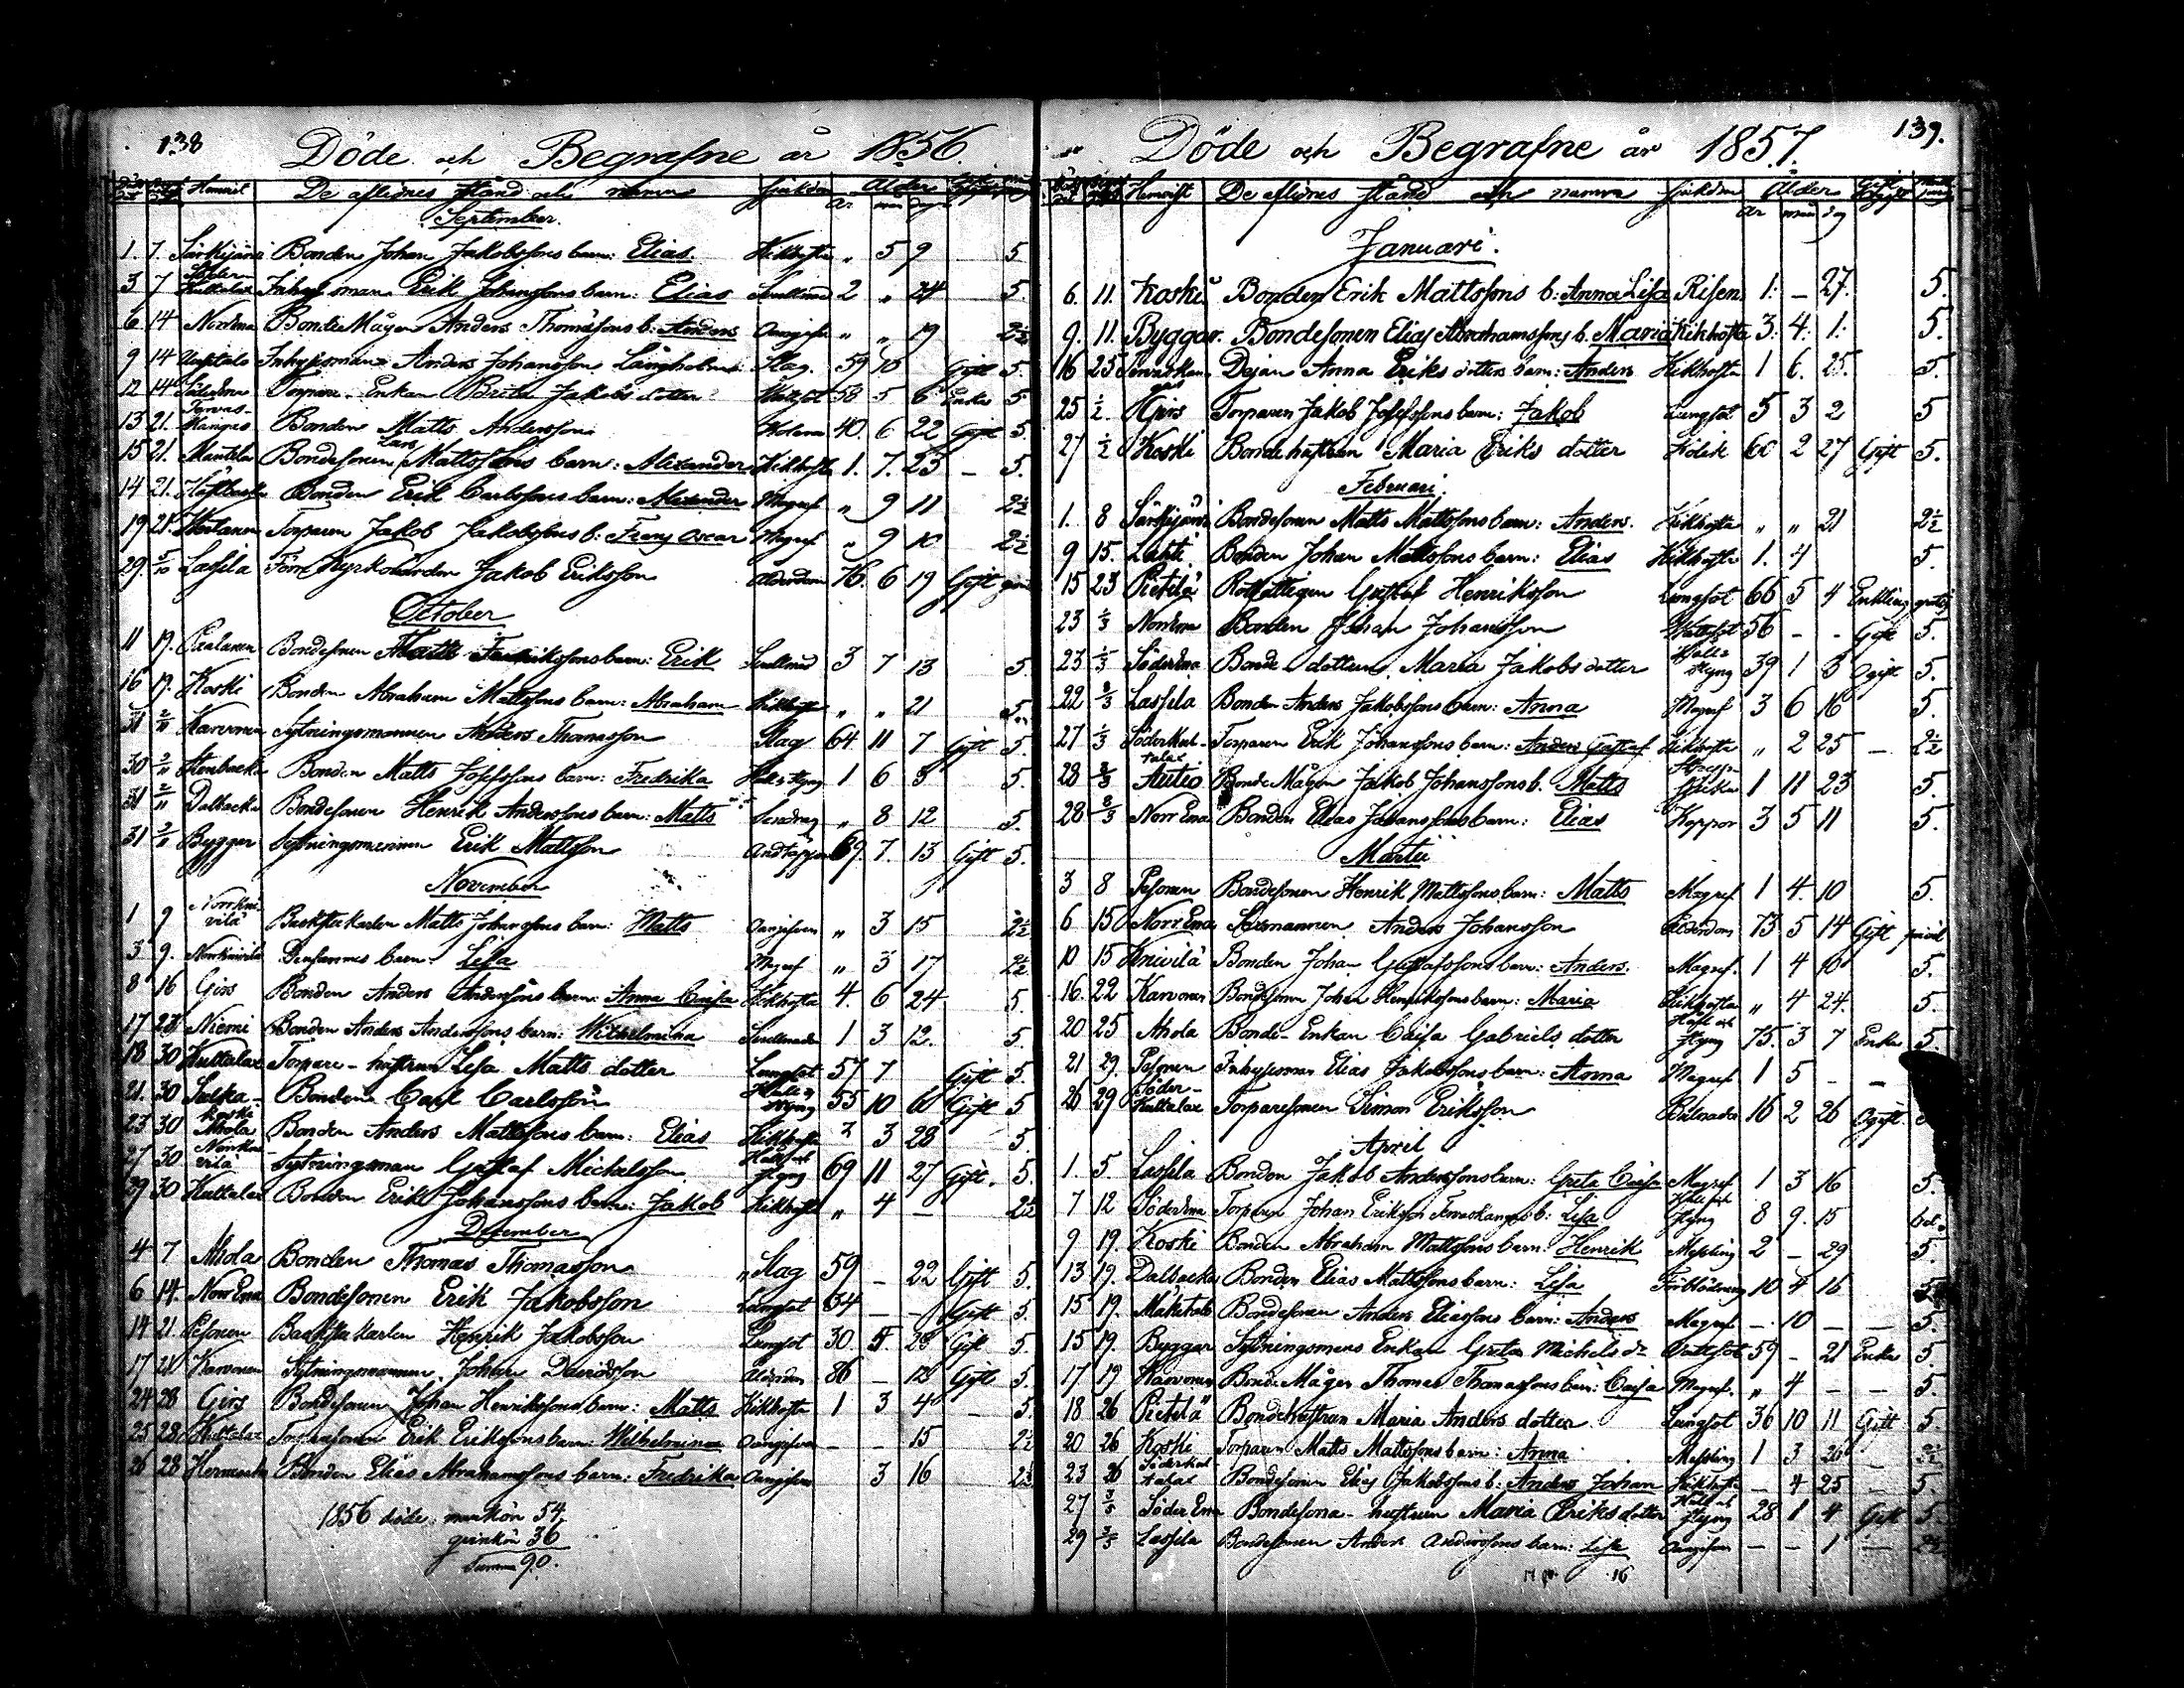 138
Döde och Begrafne år 1856.
Hemvist De aflidnes stånd och namn Sjukdom Ålder
år mån dag
September.
1. 7. Särkijärvi Bonden Johan Jakobssons barn: Elias. Kikhosta " 5 9 5
3 7 Söder Kultalax Inhysman Erik Johanssons barn: Elias 2 " 24 5.
6 14 Norrena Bonde Mågen Anders Thomassons b: Anders Oangifven " " 19 2½
9 14 Inhysman Anders Johansson Långholm Slag. 59 10 Gift 5.
12 14 Torpare-Enkan Brita Jakobs dotter Wattsot 58 5 6 Enka 5
13 21. Tervaskangas Bonden Matts Andersson 40. 6 22 Gift 5.
15 21. Mantela Bondesonen Lars Mattssons barn: Alexander Kikhosta 1. 7. 23 – 5.
14 21. Bonden Erik Carlssons barn: Alexander Magref " 9 11 2½
19 21. Torparen Jakob Jakobssons b: Frans Oscar Magref " 9 10 2½
29. 5/10 Lassila Förre Kyrkovärden Jakob Eriksson Ålderdom 76. 6 19 Gift
October
11 19. Bondesonen Matts Fredrikssons barn: Erik 3 7 13 5.
16 19. Koski Bonden Abraham Mattssons barn: Abraham Kikhosta " " 21 5.
31 2/11 Karvonen Sytningsmannen Anders Thomasson Slag 64 11 7 Gift 5.
30 2/11 Stenbacka Bonden Matts Josefssons barn: Fredrika Håll o. Styng 1 6 8 5.
31 2/11 Dalbacka Bondesonen Henrik Anderssons barn: Matts Sendrag " 8 12 5.
31 2/11 Byggar Sytningsmannen Erik Mattsson Andtäppa 69. 7. 13 Gift 5.
November
1 9 Norrknivilä Backstukarlen Matts Johanssons barn: Matts Oangifven " 3 15 2½
3 9. Norrknivilä Densammes barn: Lisa Magref " 3 17 2½
8 16 Girs Bonden Anders Anderssons barn: Anna Caisa Kikhosta 4. 6 24 5.
17 23 Niemi Bonden Anders Anderssons barn: Wilhelmina 1 3 12. 5.
18 30 Kultalax Torpare-hustrun Lisa Matts dotter Lungsot 57 7 Gift 5.
21. 30 Salkakoski Bonden Carl Carlsson Håll o. Styng 55 10 6 Gift 5
23 30 Ahola Bonden Anders Mattssons barn: Elias Kikhosta 2 3 28 5.
27 30 Norrknivilä Sytningsman Gustaf Michelsson Håll och Styng 69 11 27 Gift. 5.
29 30 Kultalax Bonden Erik Johanssons barn: Jakob Kikhosta " 4 – 2½
December
4 7 Ahola Bonden Thomas Thomasson Slag 59 – 22 Gift 5.
6 14. Norr Ena Bondesonen Erik Jakobsson Lungsot 34 – – Gift 5.
14 21. Pesonen Backstukarlen Henrik Jakobsson Lungsot 30 5 28 Gift 5.
17 21 Karvonen Sytningsmannen Johan Davidsson Ålderdom 86 – 12 Gift 5.
24 28 Girs Bondesonen Johan Henrikssons barn: Matts Kikhosta 1 3 4 – 5.
25 28 Kultalax Torparesonen Erik Erikssons barn: Wilhelmina Oangifven – – 15 2½
26 28 Bonden Elias Abrahamssons barn: Fredrika Oangifven 3 16 2½
1856 döde: mankön 54
qvinkön 36
Summa 90.
139.
Döde och Begrafne år 1857.
Hemvist De aflidnes stånd och namn Sjukdom Ålder
år mån dag
Januari.
6. 11. Koski Bonden Erik Mattssons b: Anna Lisa Risen 1: – 27. 5.
9. 11. Byggar. Bondesonen Elias Abrahamssons b. Maria Kikhosta 3. 4. 1. 5.
16 25 Tervaskangas Pejan Anna Eriks dotters barn: Anders Kikhosta 1 6. 25. 5.
25 1/2 Girs Torparen Jakob Josefssons barn: Jakob Lungsot 5 3 2 5
27 1/2 Koski Bondehustrun Maria Eriks dotter Kolik 60 2 27 Gift 5.
Februari.
1. 8 Särkijärvi Bondesonen Matts Mattssons barn: Anders. Kikhosta " " 21 2½
9 15. Lahti Bonden Johan Mattssons barn: Elias Kikhosta 1. 4 5.
15 23 Pietilä Rotfattigen Gustaf Henriksson Lungsot 66 5 4 Enkling gratis
23 1/3 Norrena Bonden Johan Johansson Wattsot 56 – – Gift 5.
23 1/3 Söderena Bonde dottern Maria Jakobs dotter Håll o Styng 39 1 3 Ogift 5.
22 8/3 Lassila Bonden Anders Jakobssons barn: Anna Magref 3 6 16 5.
27 1/3 Söderkultalax Torparen Erik Johanssons barn: Anders Gustaf Kikhosta " 2 25 – 2½
28 8/3 Autio Bonde Mågen Jakob Johanssons b. Matts 1 11 23 5.
28 8/3 Norr Ena Bonden Elias Johanssons barn: Elias Koppor 3 5 11 5.
Martii
3 8 Pesonen Bondesonen Henrik Mattssons barn: Matts Magref 1 4. 10 5.
6 15 Norr Ena Sexmannen Anders Johansson Ålderdom 73 5 14 Gift
10 15 Knivilä Bonden Johan Gustafssons barn: Anders. Magref. 1 4 10 5.
16. 22 Karvonen Bondesonen Johan Henrikssons barn: Maria Kikhosta " 4 24. 5.
20 25 Ahola Bonde-Enkan Caisa Gabriels dotter Håll och Styng 75. 3 7 Enka 5.
21 29. Pesonen Inhysesman Elias Jakobssons barn: Anna Magref 1 5 – –
26 29 Söder-Kultalax Torparesonen Simon Eriksson 16 2 26 Ogift.
April
1. 5. Lassila Bonden Jakob Anderssons barn: Greta Caisa Magref 1 3 16 5.
7 12 Söderena Torparen Johan Eriksson Tervaskangas b: Lisa Håll och Styng 8 9. 15
9 19. Koski Bonden Abraham Mattssons barn: Henrik Messling 2 – 29 5.
13 19. Dalbacka Bonden Elias Mattssons barn: Lisa Förblödning 10 4 16
15 19. Mäkitalo Bondesonen Anders Eliassons barn: Anders Magref – 10 – – 5.
15 19. Byggar Sytningsmans Enkan Greta Michels dr Wattsot 59 – 21 Enka 5.
17 19 Karvonen Bonde Mågen Thomas Thomassons barn: Caisa Magref. " 4 – – 5.
18 26 Pietilä Bondehustrun Maria Anders dotter Lungsot 36 10 11 Gift 5.
20 26 Koski Torparen Matts Mattssons barn: Anna Messling 1 3 26 – 2½
23 26 Söderkultalax Bondesonen Elias Jakobssons b: Anders Johan Kikhosta – 4 25 – 5.
27 3/5 Söder Ena Bondesona-hustrun Maria Eriks dotter Håll och Styng 28 1 4 Gift 5.
29 3/5 Lassila Bondesonen Anders Anderssons barn: Lisa Oangifven – – 1 – 2½
16